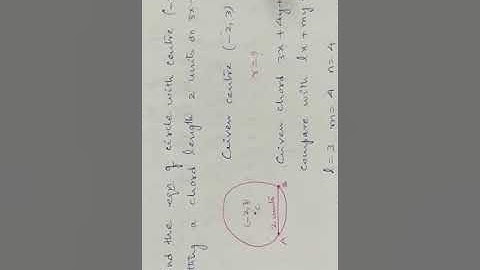 nd the eqn of circle with centre (-
tting a chord length 2 units on 3x
Given centre (-2, 3)
r=?
(-2,3)
C
2 units
A
B
Given chord 3x + 4y +
compare with lx + my
l = 3 m = 4 n = 4